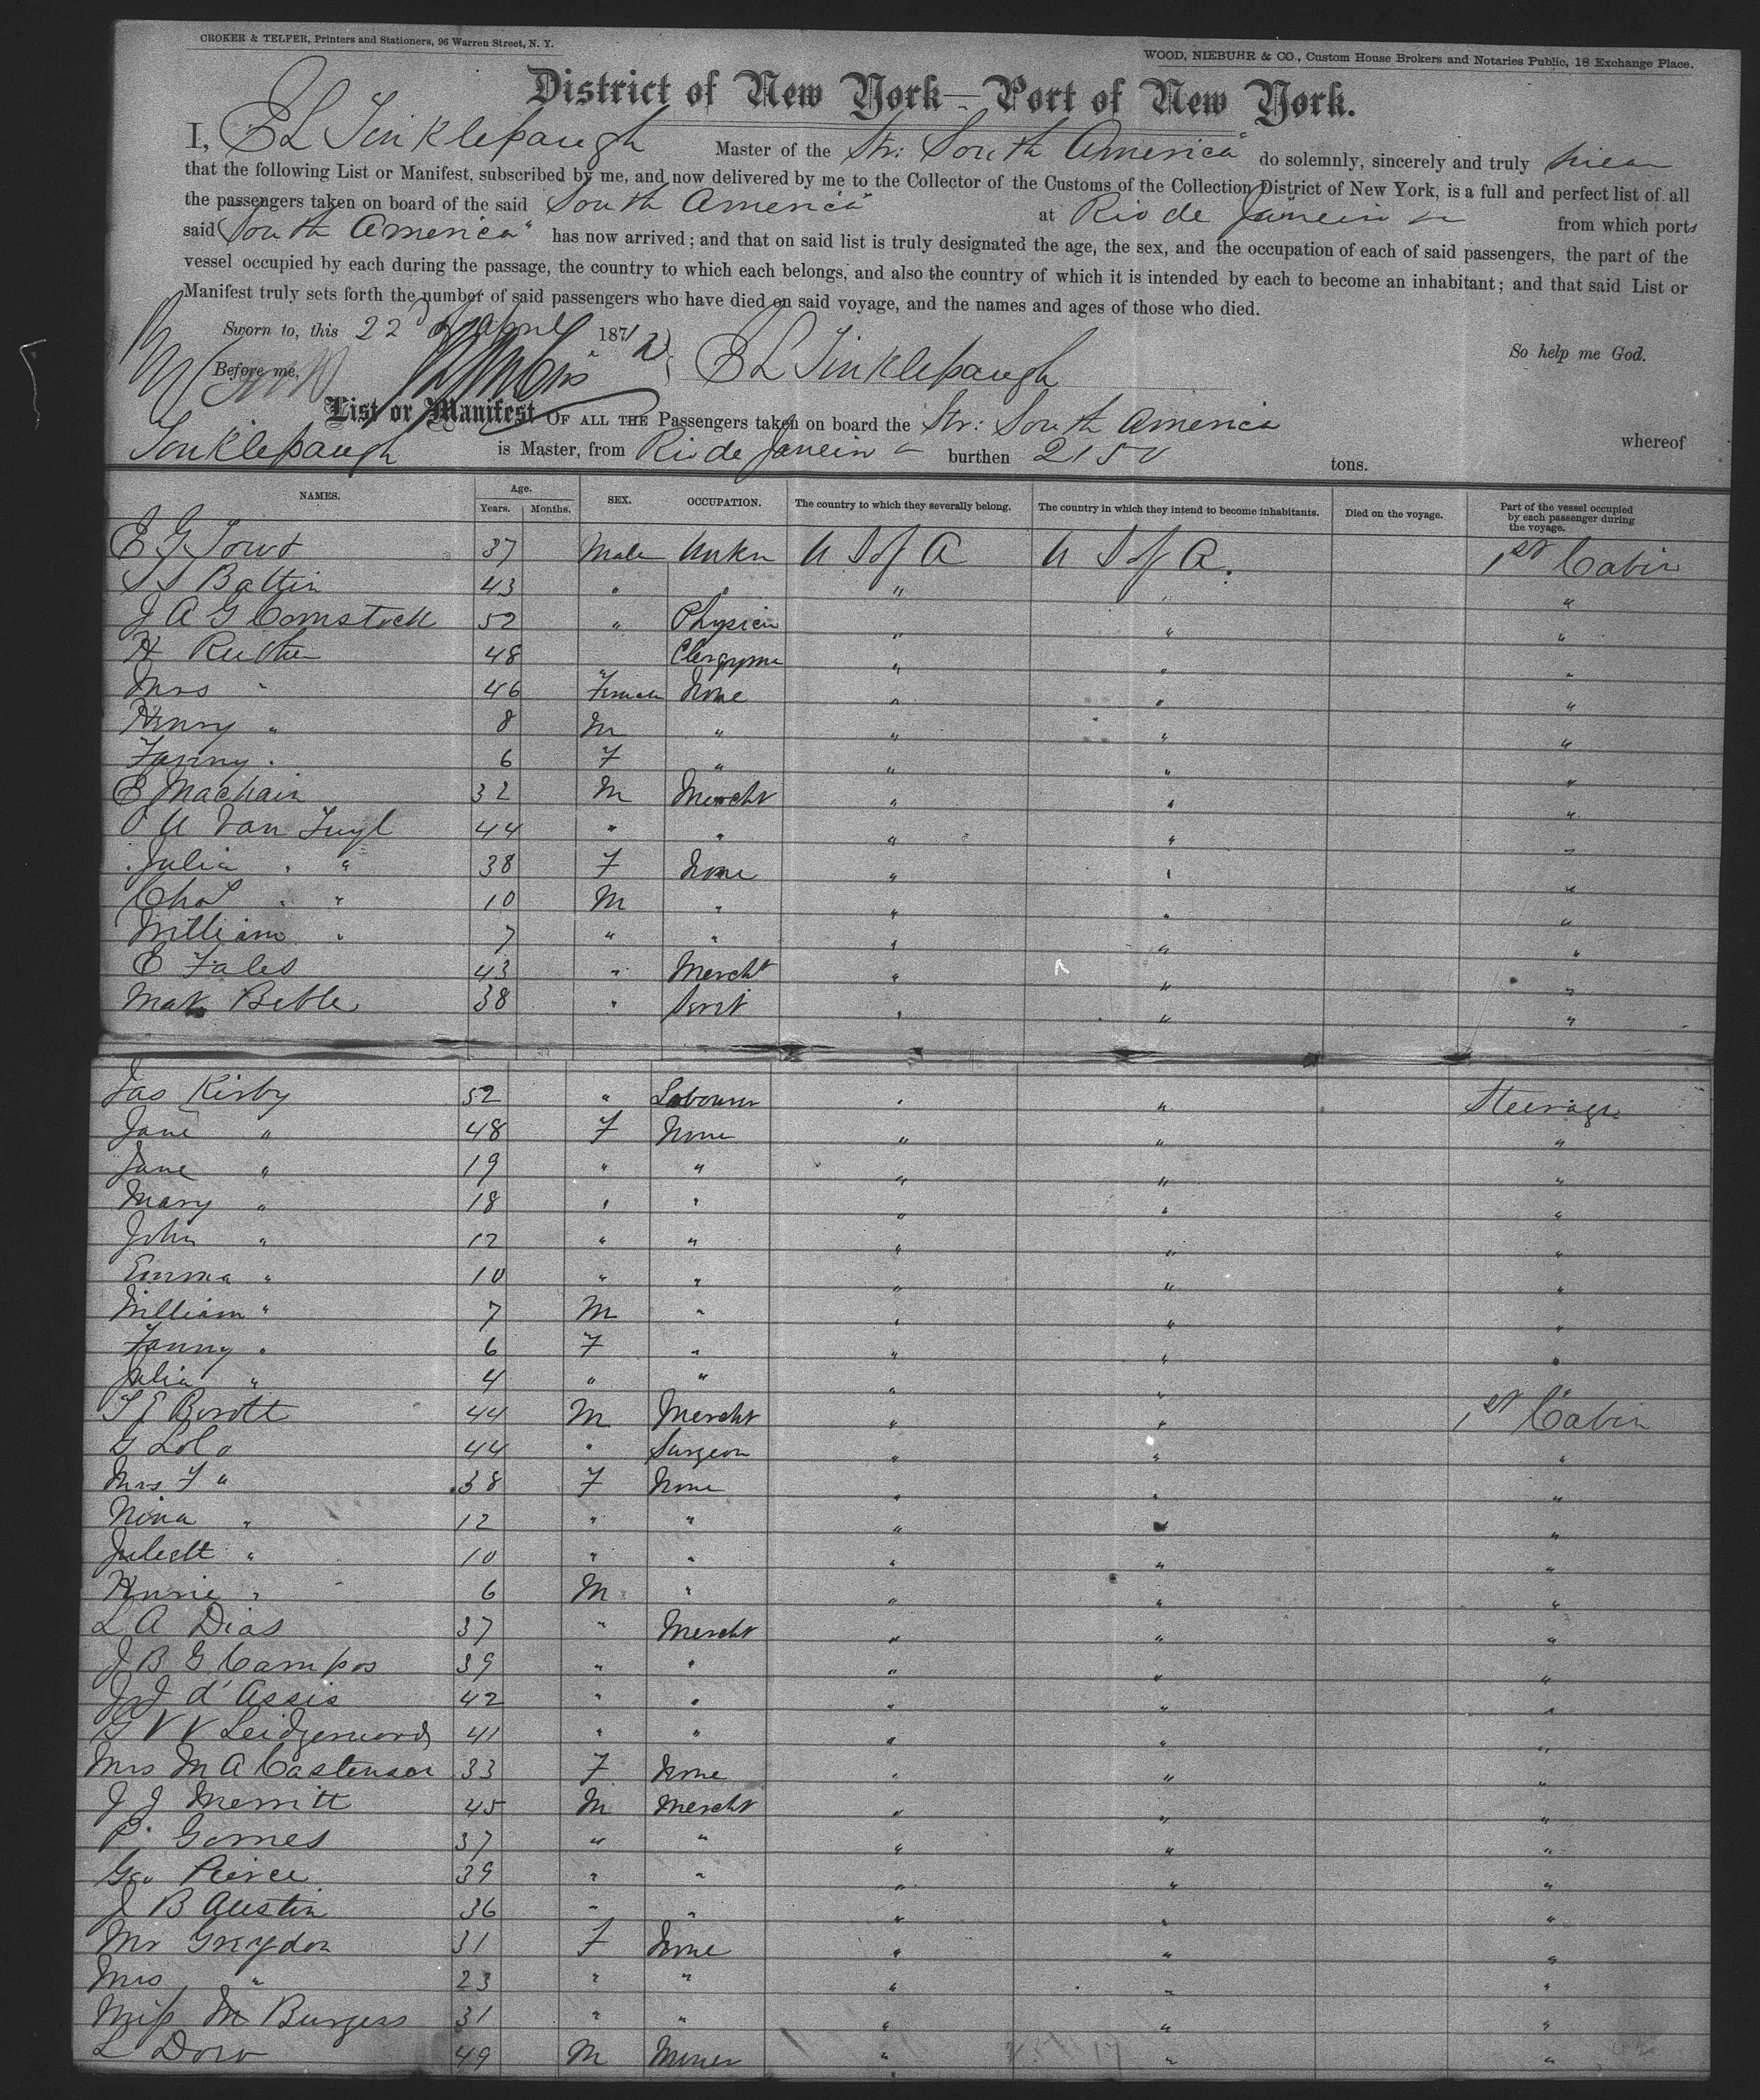 CROKER & TELFER, Printers and Stationers, 96 Warren Street, N. Y.
WOOD, NIEBUHR & CO., Custom House Brokers and Notaries Public, 18 Exchange Place.
District of New York—Port of New York.
I, E L Tinklepaugh Master of the Str: South America do solemnly, sincerely and truly swear
that the following List or Manifest, subscribed by me, and now delivered by me to the Collector of the Customs of the Collection District of New York, is a full and perfect list of all
the passengers taken on board of the said South America at Rio de Janeiro from which ports
said South America" has now arrived; and that on said list is truly designated the age, the sex, and the occupation of each of said passengers, the part of the
vessel occupied by each during the passage, the country to which each belongs, and also the country of which it is intended by each to become an inhabitant; and that said List or
Manifest truly sets forth the number of said passengers who have died on said voyage, and the names and ages of those who died.
Sworn to, this 22 of April 1872 So help me God.
Before me, E L Tinklepaugh
List or Manifest OF ALL THE Passengers taken on board the Str: South America whereof
Tinklepaugh is Master, from Rio de Janeiro burthen 2150 tons.
NAMES. Age. Years. Months. SEX. OCCUPATION. The country to which they severally belong. The country in which they intend to become inhabitants. Died on the voyage. Part of the vessel occupied by each passenger during the voyage.
37 Male Unkn U S of A U S of A. 1st Cabin
Battin 43 " " " " "
J A G Comstock 52 " Physicin " " "
H 48 Clergymn " " "
Mrs " 46 Female None " " "
Henry " 8 M " " " "
Fanny " 6 F " " " "
E Machain 32 M Mercht " " "
Van Tuyl 44 " " " " "
Julia " " 38 F None " " "
Chas " " 10 M " " " "
William " 7 " " " " "
E Fales 43 " Mercht " " "
Max Beble 38 " Servt " " "
Jas Kirby 52 " Labourer " " Steerage
Jane " 48 F None " " "
Jane " 19 " " " " "
Mary " 18 " " " " "
John " 12 " " " " "
Emma " 10 " " " " "
William " 7 M " " " "
Fanny " 6 F " " " "
Julia " 4 " " " " "
44 M Mercht " " 1st Cabin
G Lolo 44 " Surgeon " " "
Mrs F " 38 F None " " "
Nina " 12 " " " " "
Juliett " 10 " " " " "
" 6 M " " " "
L A Dias 37 " Mercht " " "
J B G Campos 39 " " " " "
J J d'Assis 42 " " " " "
41 " " " " "
Mrs M A Castensen 33 F None " " "
J J Merritt 45 M Mercht " " "
P. Gomes 37 " " " " "
Geo Peirce 39 " " " " "
J B Austin 36 " " " " "
Mr Graydon 31 F None " " "
Mrs " 23 " " " " "
Miss M Burgess 31 " " " " "
L Dorv 49 M Miner " " "